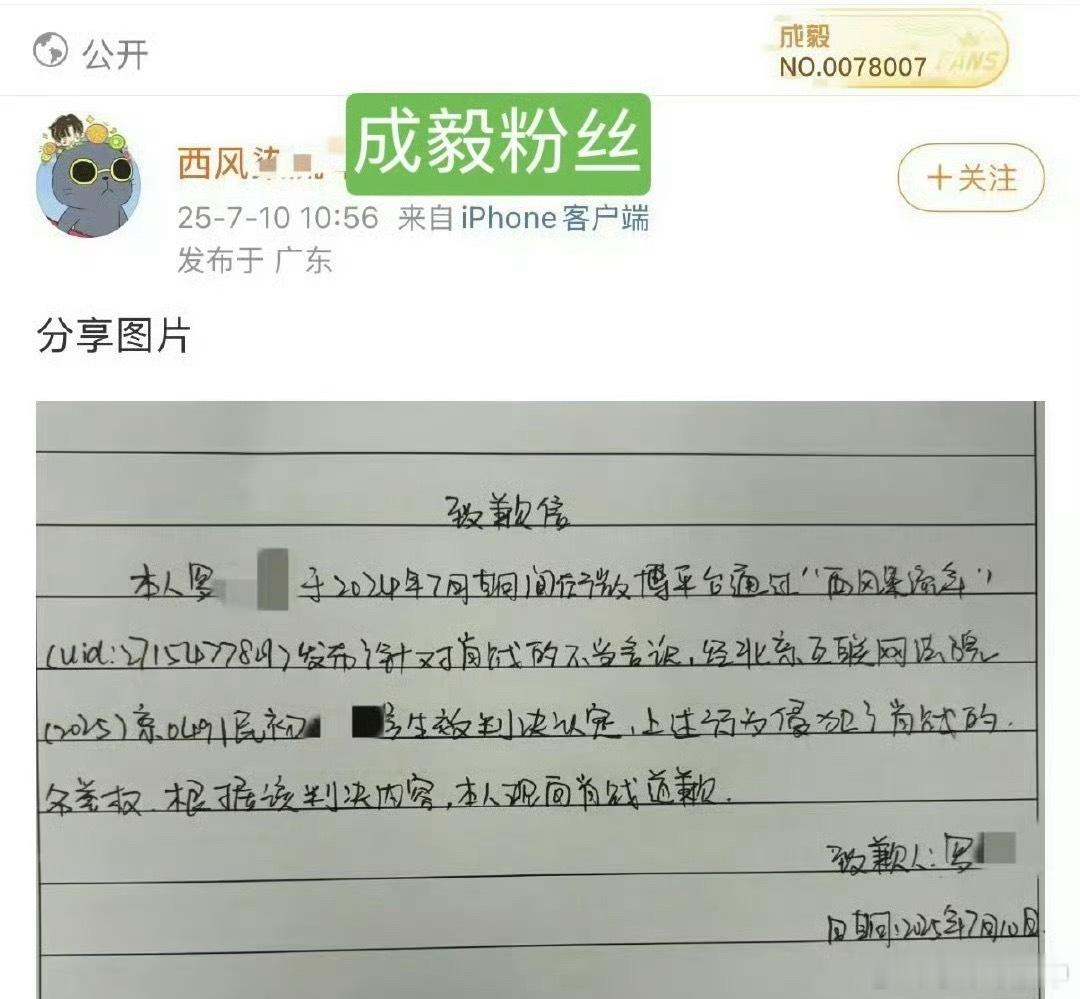 公开
成毅
NO.0078007
FANS
西风
成毅粉丝
+关注
25-7-10 10:56 来自 iPhone客户端
发布于 广东
分享图片
致歉信
本人罗 于2024年7月期间在微博平台通过“西风集流年”
(uid:2715477849)发布了针对肖战的不当言论,经北京互联网法院
(2025)京0491民初 号生效判决认定,上述行为侵犯了肖战的
名誉权.根据该判决内容,本人现向肖战道歉.
致歉人:罗
日期:2025年7月10日